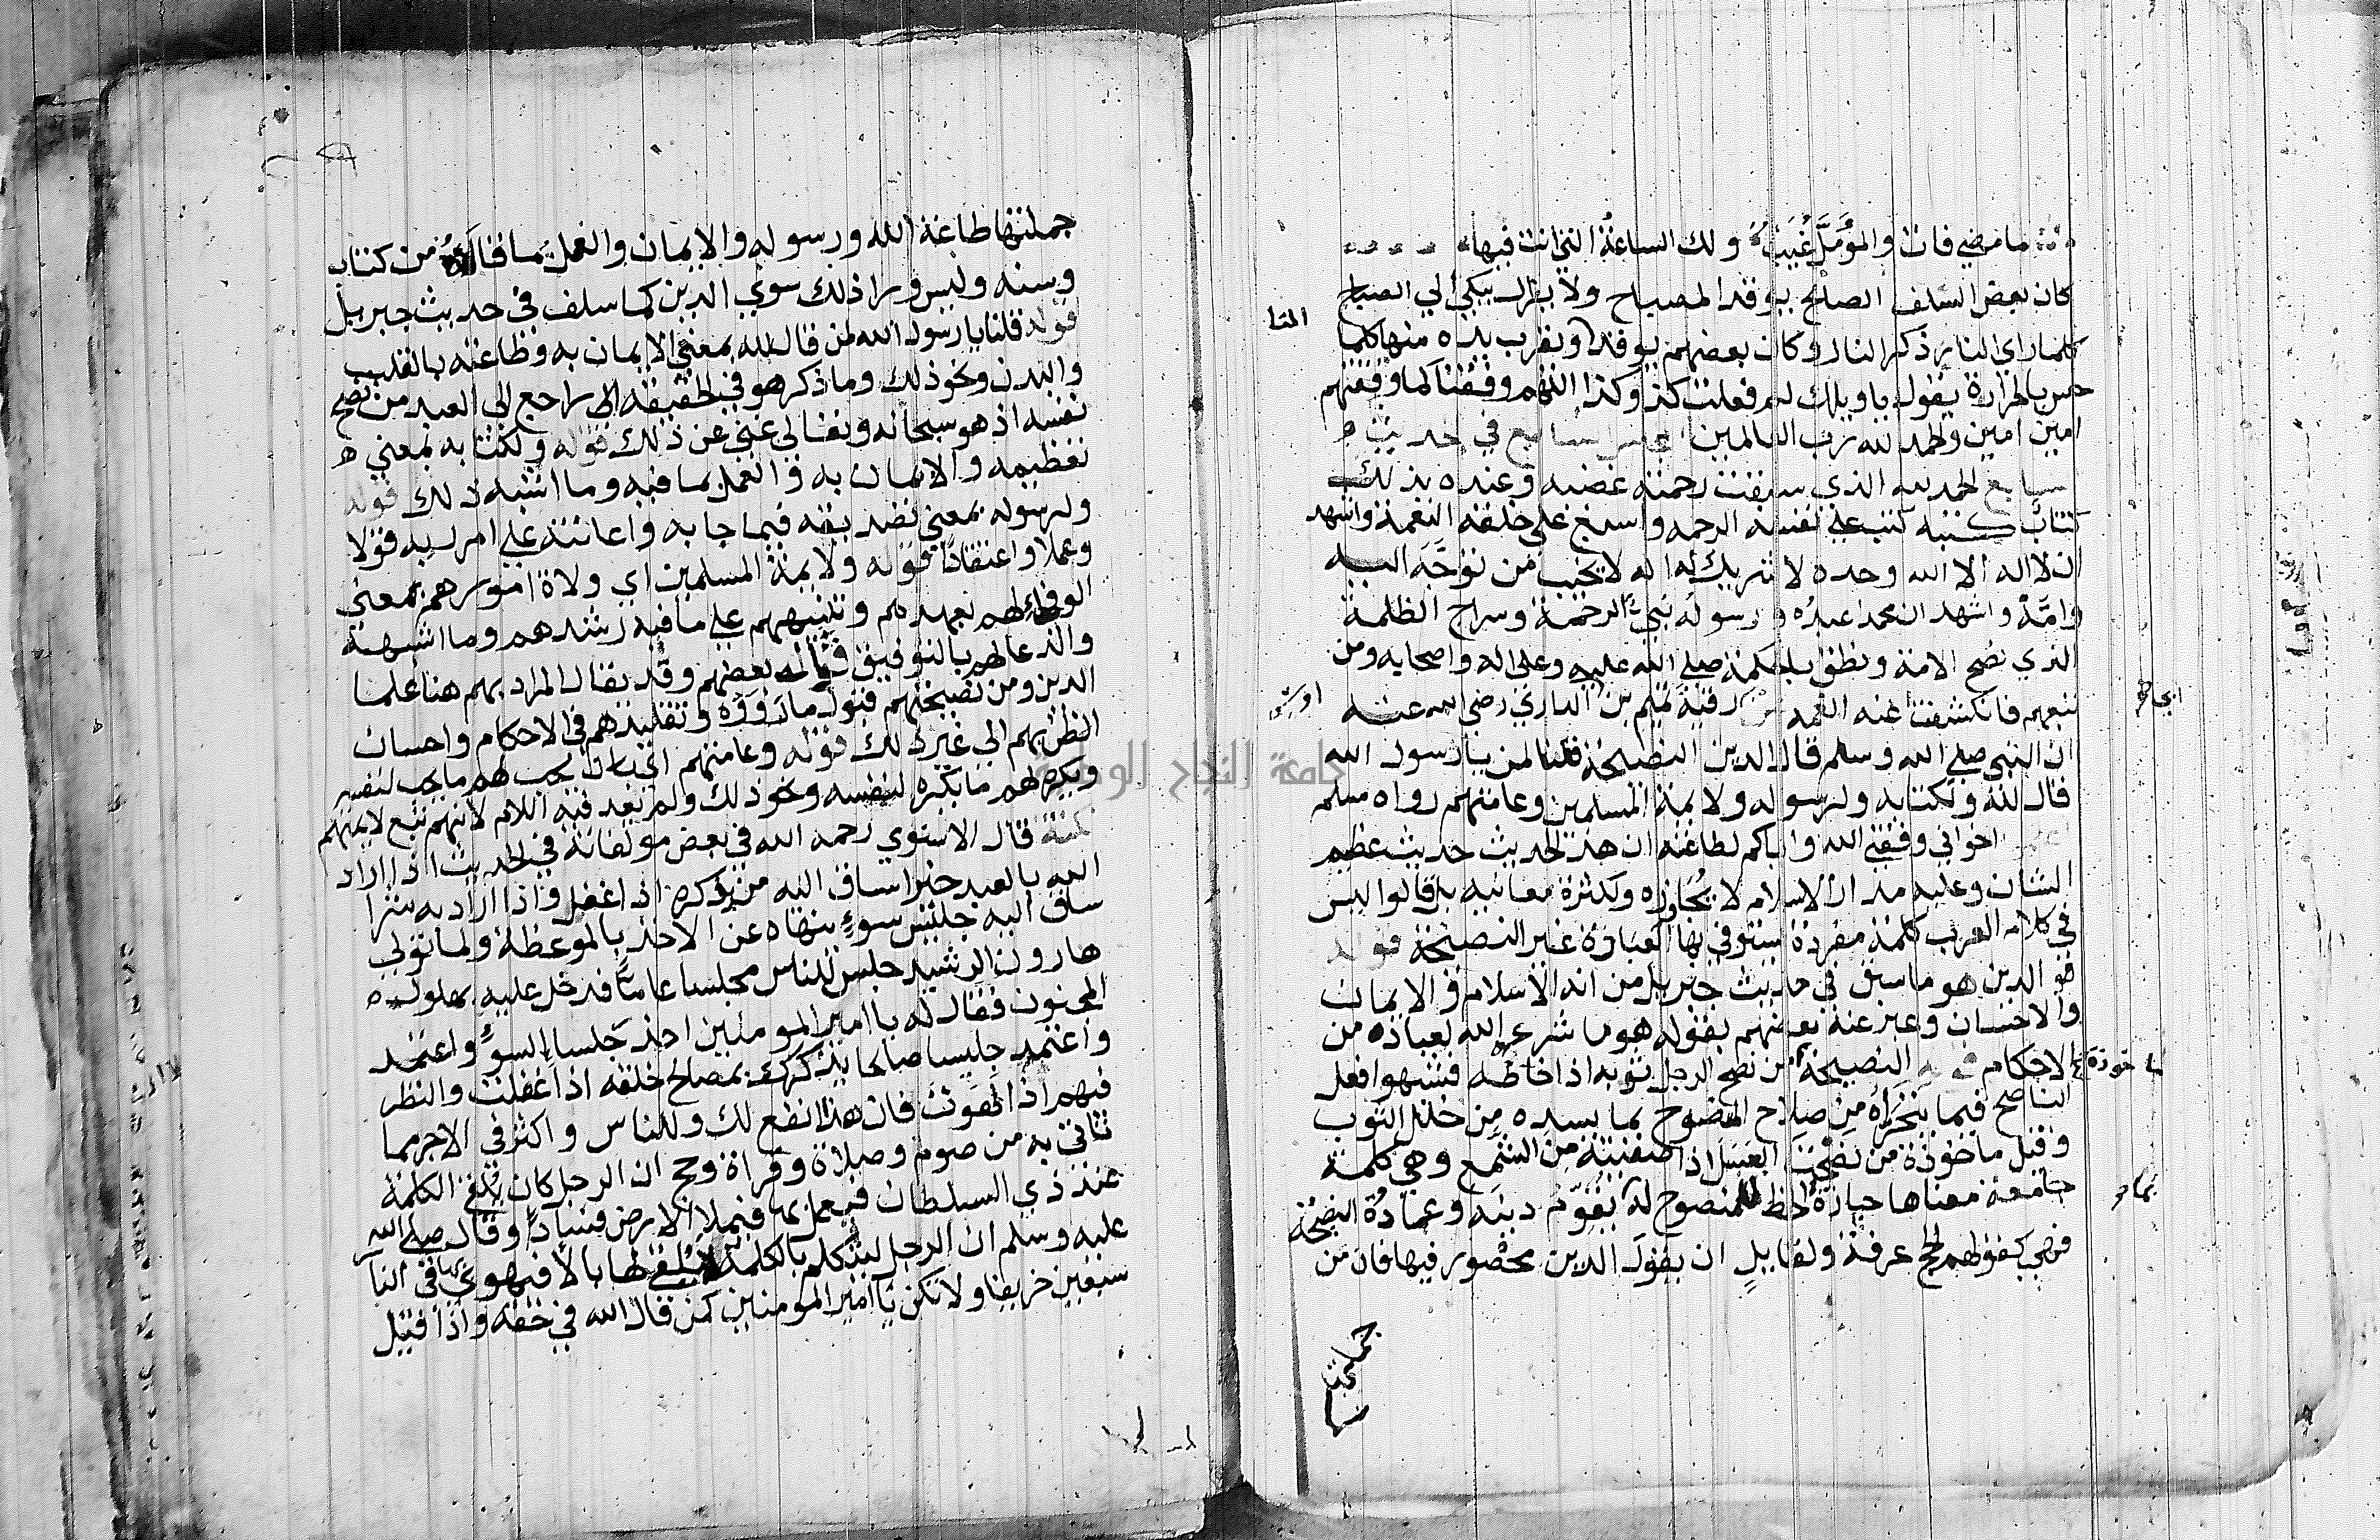 ما مضي فات والمؤمَّل غُيَيبٌ ولك الساعة التي انت فيها
كان بعض السلف الصالح يوقد المصباح ولا يزال يبكي الي الصباح
كلما راي النار ذكر النار وكان بعضهم يوقدها ويقرب يده منها كلما
حس بالحرارة يقول يا ويلك لم فعلت كذا وكذا اللهم وفقنا كما وفقتهم
امين امين والحمد لله رب العالمين السابع في حديث
سابع الحمد لله الذي سبقت رحمته غضبه وعنده بذلك
كتابٌ كتبه كتب علي نفسه الرحمه واسبغ على خلقه النعمة واشهد
ان لا اله الا الله وحده لا شريك له اله لا يخيب من توجَّه اليه
وامَّهُ واشهد ان محمدا عبدُه ورسوله نبيُّ الرحمة وسراج الظلمة
الذي نصح الامة ونطق بالحكمة صلي الله عليه وعلى اله واصحابه ومن
تبعهم فانكشفت عنه الغمه رقية تميم بن الداري رضي الله عنه
ان النبي صلي الله وسلم قال الدين النصيحة قلنا لمن يا رسول الله
قال لله ولكتابه ولرسوله ولايمة المسلمين وعامتهم رواه مسلم
اخواني وفقني الله واياكم لطاعته ان هذا الحديث حديث عظيم
الشان وعليه مدار الاسلام لا يُجَاوزه ولكثرة معانيه بل قالوا ليس
في كلام العرب كلمة مفردة يستوفي بها العبارة غير النصيحة قوله
قو الدين هو ما سبق في حديث جبريل من انه الاسلام والايمان
والاحسان وعبر عنه بعضهم بقوله هو ما شرع الله لعباده من
الاحكام النصيحة من نصح الرجل ثوبه اذا خاطه فشبهوا فعل
الناصح فيما يتحرّاهُ من صلاح المنصوح بما يسده من خلل الثوب
وقيل ماخوذة من نصحت العسل اذا صفيته من الشمع وهي كلمة
جامعة معناها حيازة الحظ للمنصوح له يقوّم دينَه وعمادُه النصيحة
فهي كقولهم الحج عرفة ولقايلٍ ان يقول الدين محصور فيها فان من
جملتها
جملتها طاعة الله ورسوله والايمان والعمل بما قالاهُ من كتاب
وسنه وليس ورا ذلك سوي الدين كما سلف في حديث جبريل
قوله قلنا يا رسول الله لمن قال لله بمعني الايمان به وطاعته بالقلب
والبدن ونحو ذلك وما ذكر هو في الحقيقة راجع الي العبد من نصح
نفسه اذ هو سبحانه وتعالي غني عن ذلك قوله ولكتابه بمعني
تعظيمه والايمان به والعمل بما فيه وما اشبه ذلك قوله
ولرسوله بمعني تصديقه فيما جا به واعانته علي امر ربه قولا
وعملا واعتقادًا قوله ولايمة المسلمين اي ولاة امورهم بمعني
الوفاء لهم بعهدهم وتنبيههم علي ما فيه رشدهم وما اشبهه
والدعا لهم بالتوفيق قاله بعضهم وقد يقال المراد بهم هنا علما
الدين ومن نصيحتهم قبول ما رَوَوْه وتقليدهم في الاحكام واحسان
الظن بهم الي غير ذلك قوله وعامتهم اي بان يحب لهم ما يحب لنفسه
ويكره لهم ما يكره لنفسه ونحو ذلك ولم يعد فيه اللام لانهم تبع لايمتهم
نكتة قال الاسنوي رحمه الله في بعض مولفاته في الحديث اذا اراد
الله بالعبد خيرا ساق اليه من يذكره اذا غفل واذا اراد به شرا
ساق اليه جليس سوءٍ ينهاه عن الاخذ بالموعظة ولما تولي
هارون الرشيد جلس للناس مجلسا عامًّا فدخل عليه بهلول
المجنون فقال له يا امير المومنين احذر جلسا السوءِ واعتمد
واعتمد جليسا صالحا يذكرك بمصالح خلقه اذا غفلت والنظر
فيهم اذا لهوت فان هذا انفع لك وللناس واكثر في الاجر مما
تاتي به من صوم وصلاة وقراة وحج ان الرجل كان يُلقي الكلمة
عند ذي السلطان فيعمل بها فيملا الارض فسادًا وقال صلي الله
عليه وسلم ان الرجل ليتكلم بالكلمة لا يلقي لها بالا فيهوي بها في النا
سبعين خريفا ولا تكن يا امير المومنين كمن قال الله في حقه واذا قيل